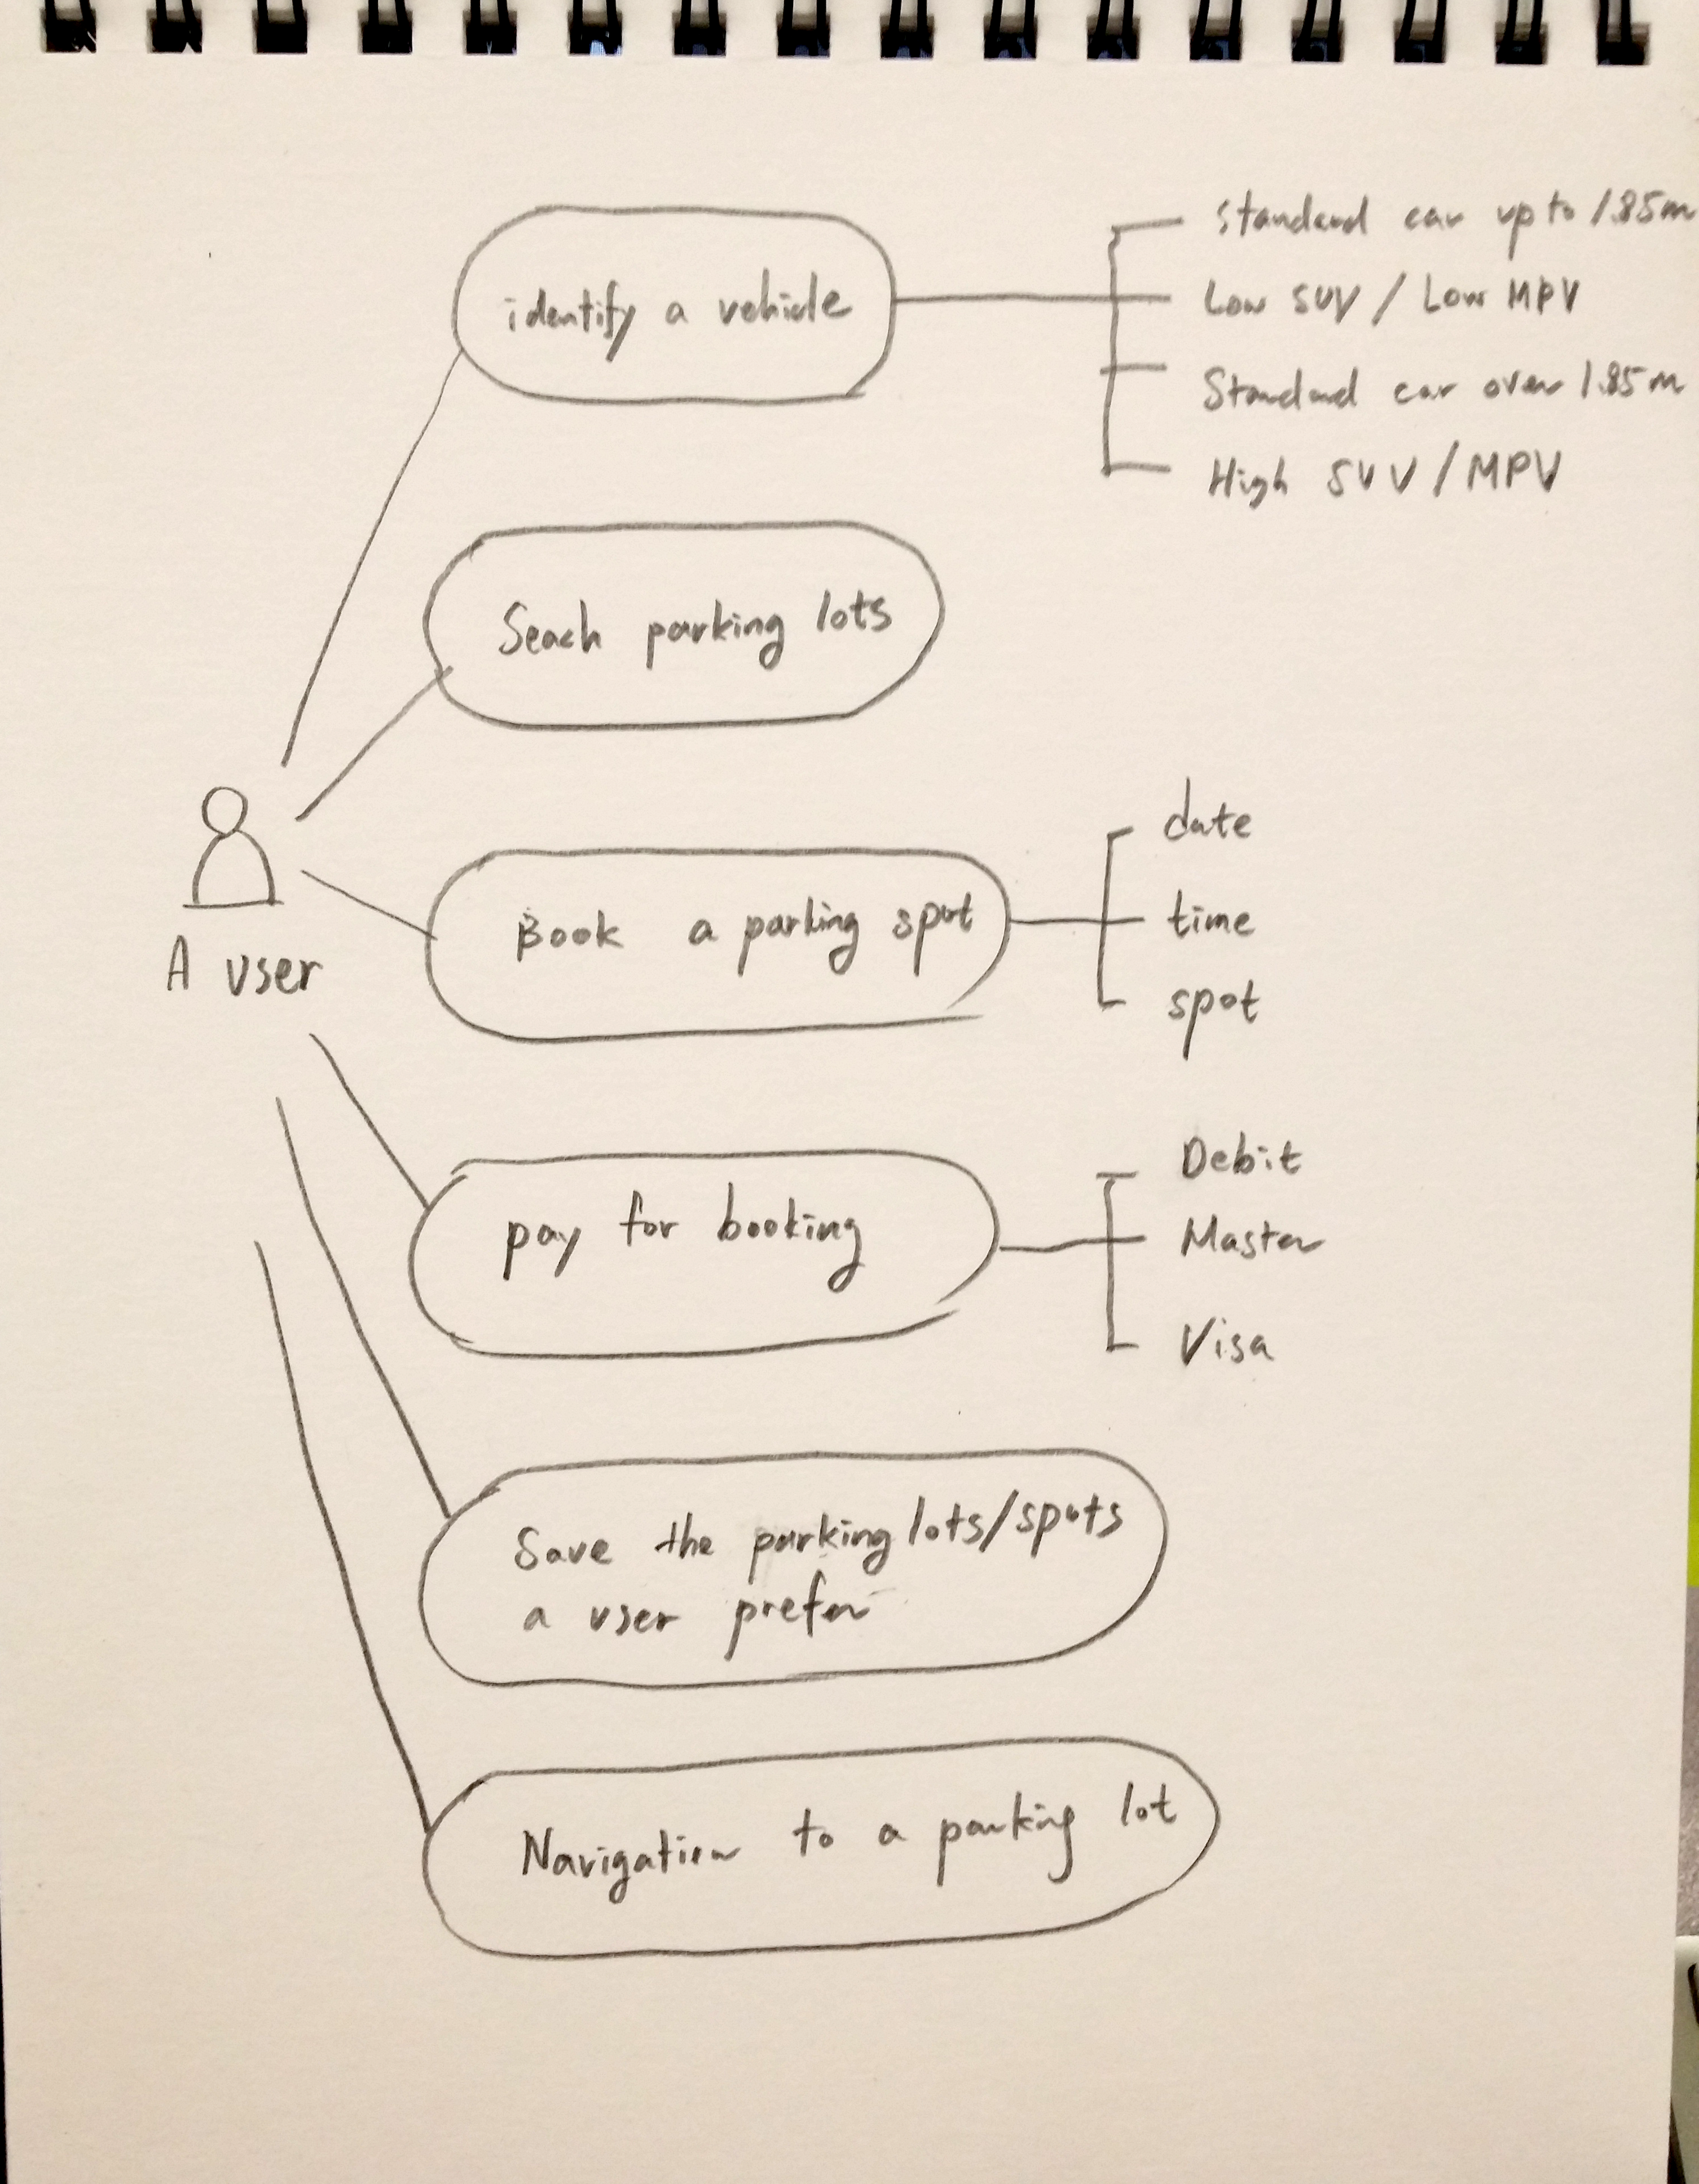 identify a vehicle
Standard car up to 1.85m
Low SUV / Low MPV
Standard car over 1.85m
High SUV / MPV
Seach parking lots
A user
Book a parking spot
date
time
spot
pay for booking
Debit
Master
Visa
Save the parking lots/spots
a user prefer
Navigation to a parking lot